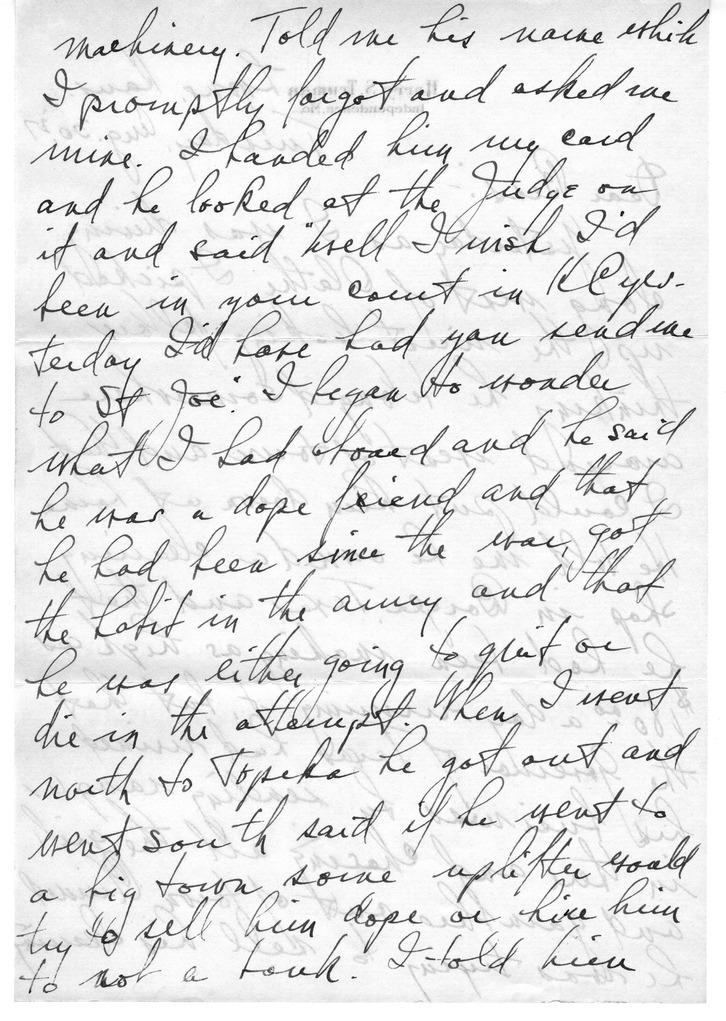 machinery. Told me his name which
I promptly forgot and asked me
mine. I handed him my card
and he looked at the Judge on
it and said "Well I wish I'd
been in your court in KC yes-
terday I'd have had you send me
to St Joe". I began to wonder
what I had and he said
he was a dope friend and that
he had been since the war, got
the habit in the army and that
he was either going to quit or
die in the attempt. When I went
north to Topeka he got out and
went south said if he went to
a big town some uplifter would
try to sell him dope or hire him
to rob a bank. I told him